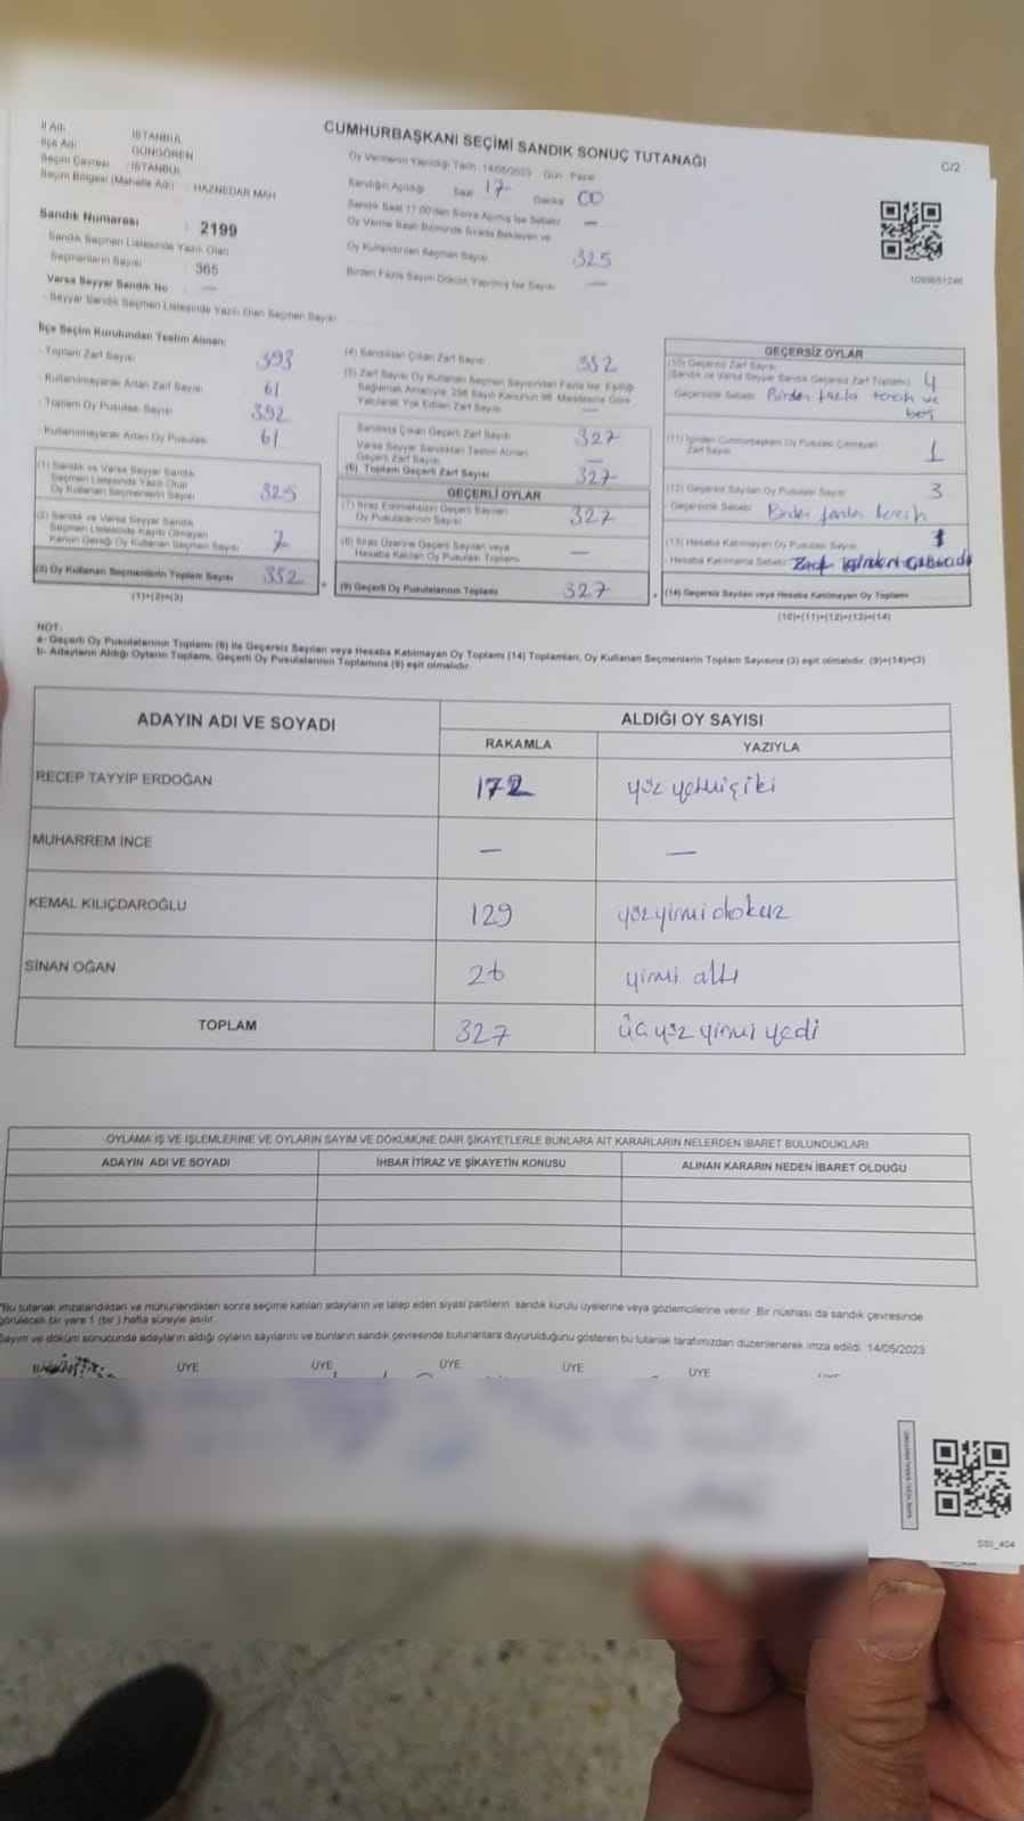 CUMHURBAŞKANI SEÇİMİ SANDIK SONUÇ TUTANAĞI
C/2
İl Adı: İSTANBUL
İlçe Adı: GÜNGÖREN
Seçim Çevresi: İSTANBUL
Seçim Bölgesi (Mahalle Adı): HAZNEDAR MAH
Oy Vermenin Yapıldığı Tarih: 14/05/2023 Gün: Pazar
Sandığın Açıldığı Saat 17 Dakika 00
Sandık Saat 17:00'den Sonra Açılmış İse Sebebi —
Oy Verme Saati Bitiminde Sırada Bekleyen ve
Oy Kullandırılan Seçmen Sayısı 325
Birden Fazla Sayım Döküm Yapılmış İse Sayısı —
Sandık Numarası : 2199
Sandık Seçmen Listesinde Yazılı Olan
Seçmenlerin Sayısı 365
Varsa Seyyar Sandık No —
Seyyar Sandık Seçmen Listesinde Yazılı Olan Seçmen Sayısı
İlçe Seçim Kurulundan Teslim Alınan:
Toplam Zarf Sayısı 393
Kullanılmayarak Artan Zarf Sayısı 61
Toplam Oy Pusulası Sayısı 392
Kullanılmayarak Artan Oy Pusulası 61
(1) Sandık ve Varsa Seyyar Sandık
Seçmen Listesinde Yazılı Olup
Oy Kullanan Seçmenlerin Sayısı 325
(2) Sandık ve Varsa Seyyar Sandık
Seçmen Listesinde Kayıtlı Olmayan
Kanun Gereği Oy Kullanan Seçmen Sayısı 7
(3) Oy Kullanan Seçmenlerin Toplam Sayısı 332
(1)+(2)=(3)
(4) Sandıktan Çıkan Zarf Sayısı 332
(5) Zarf Sayısı Oy Kullanan Seçmen Sayısından Fazla İse, Eşitliği
Sağlamak Amacıyla, 298 Sayılı Kanunun 98. Maddesine Göre
Yakılarak Yok Edilen Zarf Sayısı —
Sandıkta Çıkan Geçerli Zarf Sayısı 327
Varsa Seyyar Sandıktan Teslim Alınan
Geçerli Zarf Sayısı —
(6) Toplam Geçerli Zarf Sayısı 327
GEÇERLİ OYLAR
(7) İtiraz Edilmeksizin Geçerli Sayılan
Oy Pusulalarının Sayısı 327
(8) İtiraz Üzerine Geçerli Sayılan veya
Hesaba Katılan Oy Pusulası Toplamı —
(9) Geçerli Oy Pusulalarının Toplamı 327
GEÇERSİZ OYLAR
(10) Geçersiz Zarf Sayısı
(Sandık ve Varsa Seyyar Sandık Geçersiz Zarf Toplamı) 4
Geçersizlik Sebebi: Birden fazla tercih ve
(11) İçinden Cumhurbaşkanı Oy Pusulası Çıkmayan
Zarf Sayısı 1
(12) Geçersiz Sayılan Oy Pusulası Sayısı 3
Geçersizlik Sebebi: Birden fazla tercih
(13) Hesaba Katılmayan Oy Pusulası Sayısı 1
Hesaba Katılmama Sebebi:
(14) Geçersiz Sayılan veya Hesaba Katılmayan Oy Toplamı
(10)+(11)+(12)+(13)=(14)
NOT:
a- Geçerli Oy Pusulalarının Toplamı (9) ile Geçersiz Sayılan veya Hesaba Katılmayan Oy Toplamı (14) Toplamları, Oy Kullanan Seçmenlerin Toplam Sayısına (3) eşit olmalıdır. (9)+(14)=(3)
b- Adayların Aldığı Oyların Toplamı, Geçerli Oy Pusulalarının Toplamına (9) eşit olmalıdır.
ADAYIN ADI VE SOYADI ALDIĞI OY SAYISI
RAKAMLA YAZIYLA
RECEP TAYYİP ERDOĞAN 172 yüz yetmiş iki
MUHARREM İNCE — —
KEMAL KILIÇDAROĞLU 129 yüzyirmidokuz
SİNAN OĞAN 26 yirmi altı
TOPLAM 327 üç yüz yirmi yedi
OYLAMA İŞ VE İŞLEMLERİNE VE OYLARIN SAYIM VE DÖKÜMÜNE DAİR ŞİKAYETLERLE BUNLARA AİT KARARLARIN NELERDEN İBARET BULUNDUKLARI
ADAYIN ADI VE SOYADI İHBAR İTİRAZ VE ŞİKAYETİN KONUSU ALINAN KARARIN NEDEN İBARET OLDUĞU
*Bu tutanak imzalandıktan ve mühürlendikten sonra seçime katılan adayların ve talep eden siyasi partilerin sandık kurulu üyelerine veya gözlemcilerine verilir. Bir nüshası da sandık çevresinde
görülecek bir yere 1 (bir) hafta süreyle asılır.
Sayım ve döküm sonucunda adayların aldığı oyların sayılarını ve bunların sandık çevresinde bulunanlara duyurulduğunu gösteren bu tutanak tarafımızdan düzenlenerek imza edildi. 14/05/2023
ÜYE ÜYE ÜYE ÜYE ÜYE
SSI_404